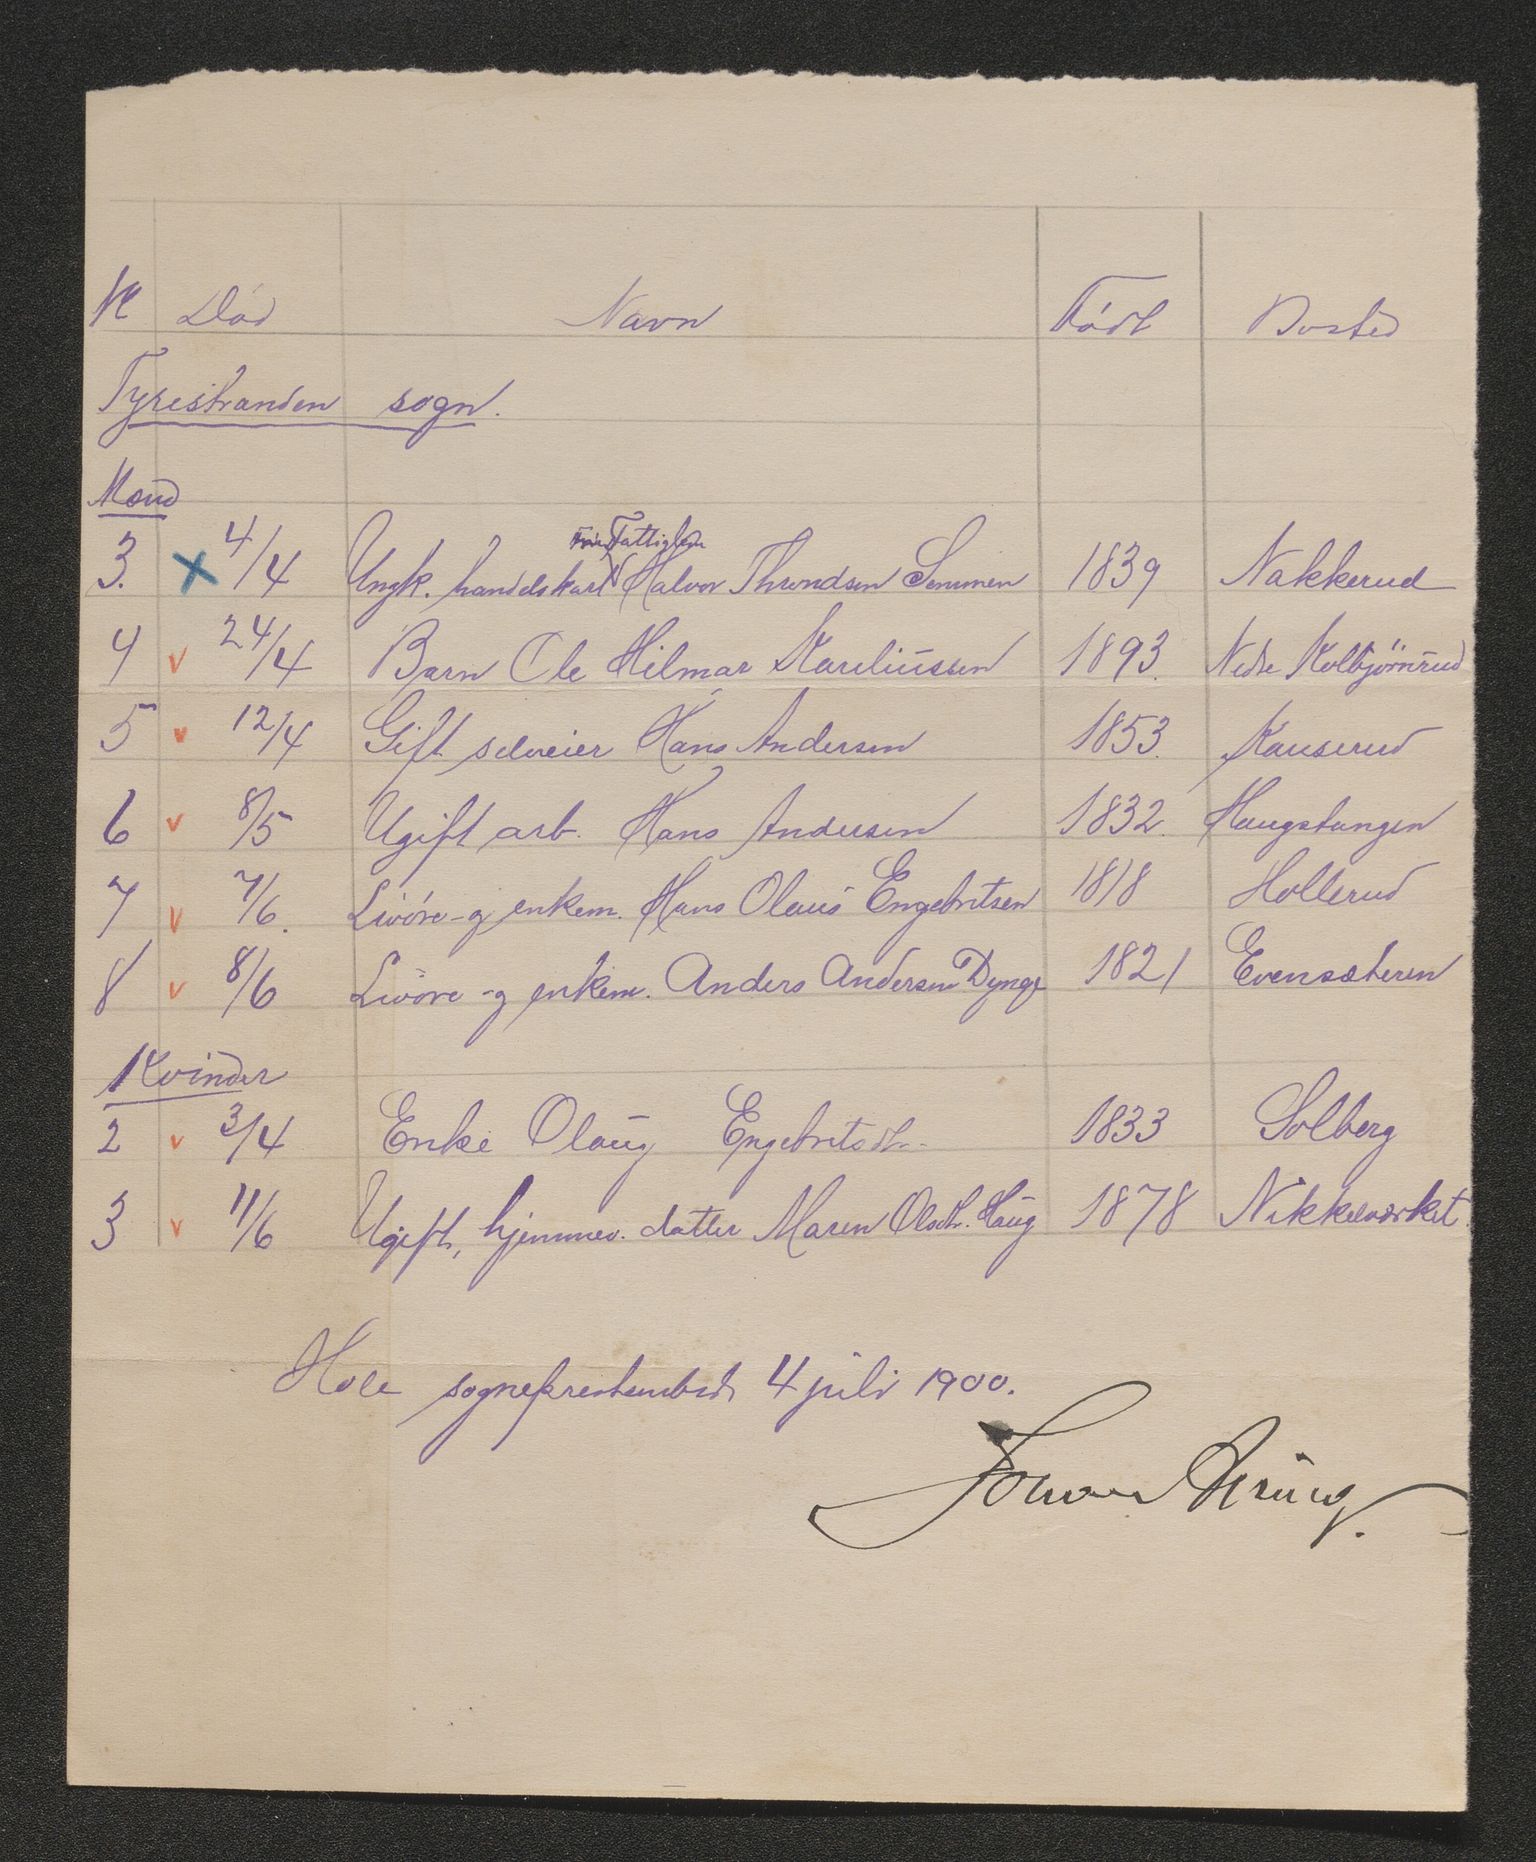 N Död Navn Födt Bosted
Tyristranden sogn.
Mænd
Fattiglem
3. 4/4 Ungk. handelskarl Halvor Throndsen Semmen 1839 Nakkerud
4 24/4 Barn Ole Hilmar Kareliussen 1893. Nedre Kolbjörnrud
5 12/4 Gift selveier Hans Andersen 1853. Kauserud
6 8/5 Ugift arb. Hans Andersen 1832. Haugstangen
7 7/6. Livöre- og enkem. Hans Olaus Engebritsen 1818 Hollerud
8 8/6 Livöre- og enkem. Anders Andersen Dynge 1821 Evensæteren
Kvinder
2 3/4 Enke Olaug Engebritsdtr. 1833 Solberg
3 11/6 Ugift, hjemmev. datter Maren Olsdtr. Haug 1878 Nikkelværket.
Hole sogneprestembed, 4 juli 1900.